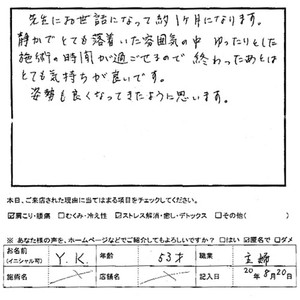 先生にお世話になって約1ヶ月になります。
静かでとても落着いた雰囲気の中 ゆったりとした
施術の時間が過ごせるので 終わったあとは
とても気持ちが良いです。
姿勢も良くなってきたように思います。
本日、ご来店された理由に当てはまる項目をチェックしてください。
☑肩こり・腰痛 □むくみ・冷え性 ☑ストレス解消・癒し・デトックス □その他( )
※ あなた様の声を、ホームページなどでご紹介してもよろしいですか? □はい ☑匿名で □ダメ
お名前 (イニシャル可) Y.K. 年齢 53才 職業 主婦
施術名 店舗名 記入日 20年8月20日